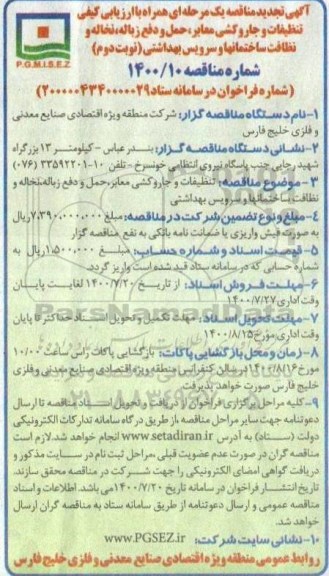 آگهی تجدید مناقصه یک مرحله‌ای همراه با ارزیابی کیفی
تنظیفات و جاروکشی معابر، حمل و دفع زباله، نخاله و
نظافت ساختمانها و سرویس بهداشتی (نوبت دوم)
P.G.M.I.S.E.Z
شماره مناقصه ۱۴۰۰/۱۰
(شماره فراخوان در سامانه ستاد ۲۰۰۰۰۰۴۳۴۰۰۰۰۰۲۹)
۱- نام دستگاه مناقصه گزار: شرکت منطقه ویژه اقتصادی صنایع معدنی
و فلزی خلیج فارس
۲- نشانی دستگاه مناقصه گزار: بندرعباس - کیلومتر ۱۳ بزرگراه
شهید رجایی جنب پاسگاه نیروی انتظامی خونسرخ - تلفن ۱۰-۳۳۵۹۲۲۰۱ (۰۷۶)
۳- موضوع مناقصه: تنظیفات و جاروکشی معابر، حمل و دفع زباله، نخاله و
نظافت ساختمانها و سرویس بهداشتی
۴- مبلغ و نوع تضمین شرکت در مناقصه: مبلغ ۷،۳۹۰،۰۰۰،۰۰۰ ریال
به صورت فیش واریزی یا ضمانت نامه بانکی به نفع مناقصه گزار
۵- قیمت اسناد و شماره حساب: مبلغ ۱،۵۰۰،۰۰۰ ریال به
شماره حسابی که در سامانه ستاد قید شده است واریز گردد.
۶- مهلت فروش اسناد: از تاریخ ۱۴۰۰/۷/۲۰ لغایت پایان
وقت اداری ۱۴۰۰/۷/۲۷
۷- مهلت تحویل اسناد: مهلت تکمیل و تحویل اسناد حداکثر تا پایان
وقت اداری مورخ ۱۴۰۰/۸/۱۵
۸- زمان و محل بازگشایی پاکات: بازگشایی پاکات راس ساعت ۱۰/۰۰
مورخ ۱۴۰۰/۸/۱۶ در سالن کنفرانس منطقه ویژه اقتصادی صنایع معدنی و فلزی
خلیج فارس صورت خواهد پذیرفت.
۹- کلیه مراحل برگزاری فراخوان از دریافت و تحویل اسناد مناقصه تا ارسال
دعوتنامه جهت سایر مراحل مناقصه، از طریق درگاه سامانه تدارکات الکترونیکی
دولت (ستاد) به آدرس www.setadiran.ir انجام خواهد شد. لازم است
مناقصه گران در صورت عدم عضویت قبلی، مراحل ثبت نام در سایت مذکور و
دریافت گواهی امضای الکترونیکی را جهت شرکت در مناقصه محقق سازند.
تاریخ انتشار فراخوان در سامانه تاریخ ۱۴۰۰/۷/۲۰ می باشد. اطلاعات و اسناد
مناقصه عمومی و ارسال دعوتنامه از طریق سامانه ستاد به مناقصه گران ارسال
خواهد شد.
۱۰- نشانی سایت شرکت: www.PGSEZ.ir
روابط عمومی منطقه ویژه اقتصادی صنایع معدنی و فلزی خلیج فارس